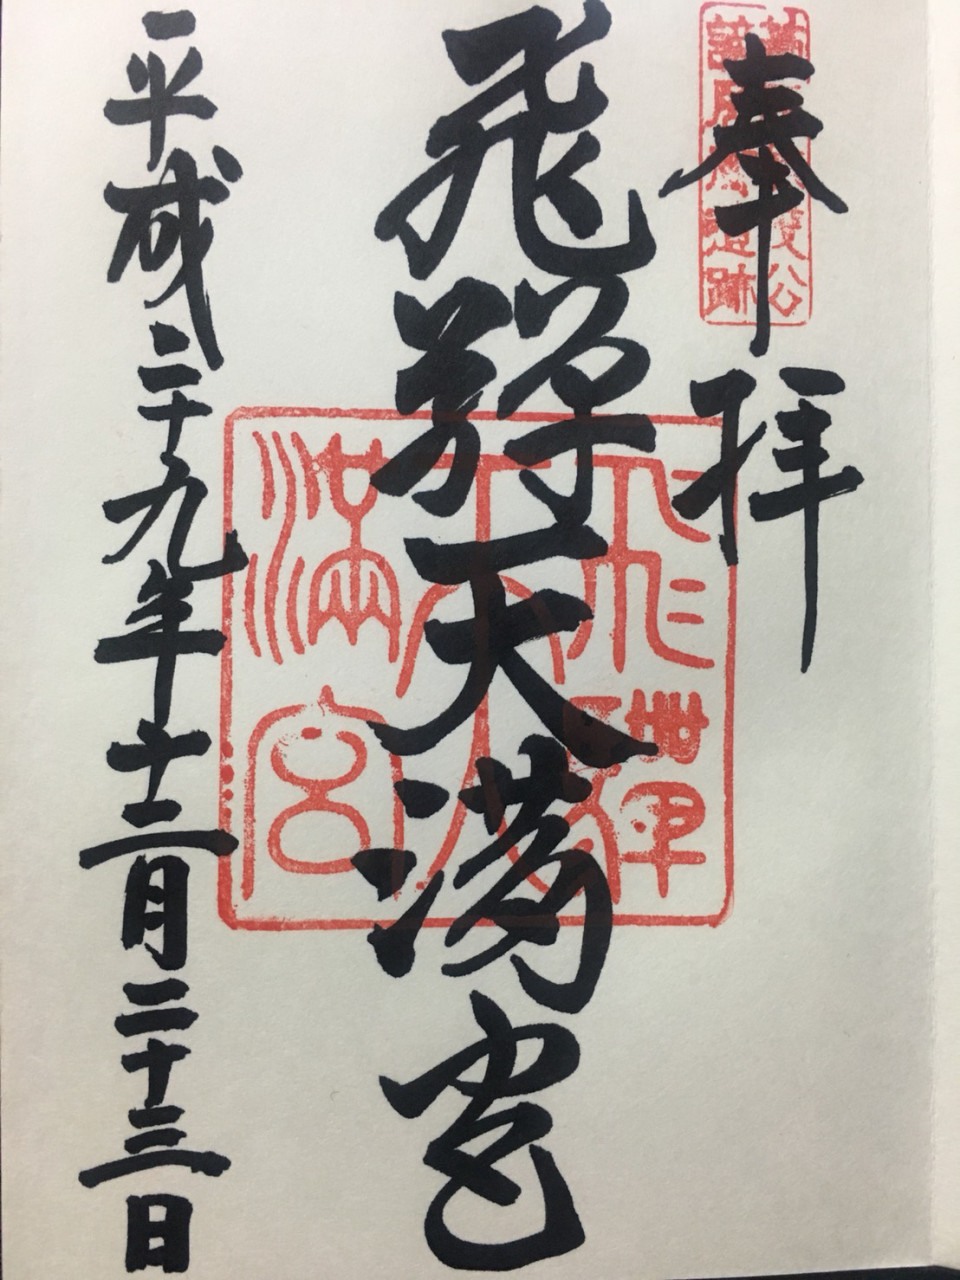 奉拝
飛騨天満宮
平成二十九年十二月二十三日
公
遺跡
飛騨
天
満宮